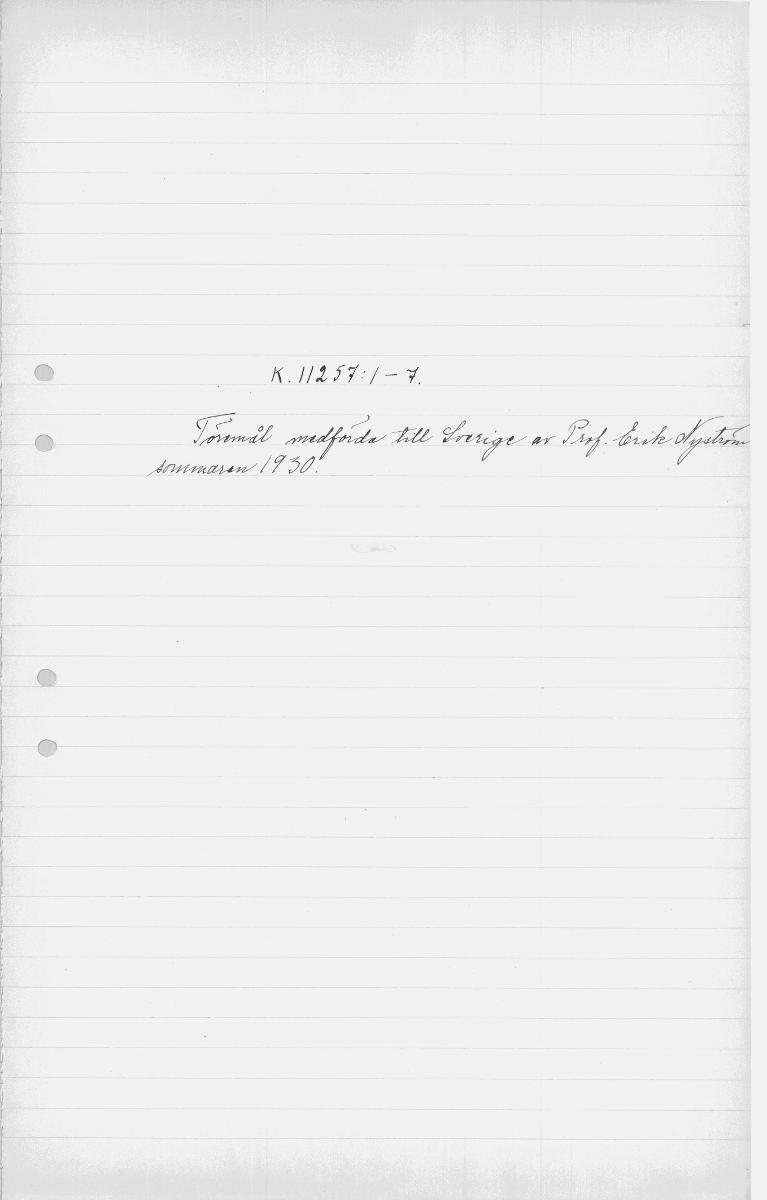 K. 11257:1 – 7.
Föremål medförda till Sverige av Prof. Erik Nyström
sommaren 1930.